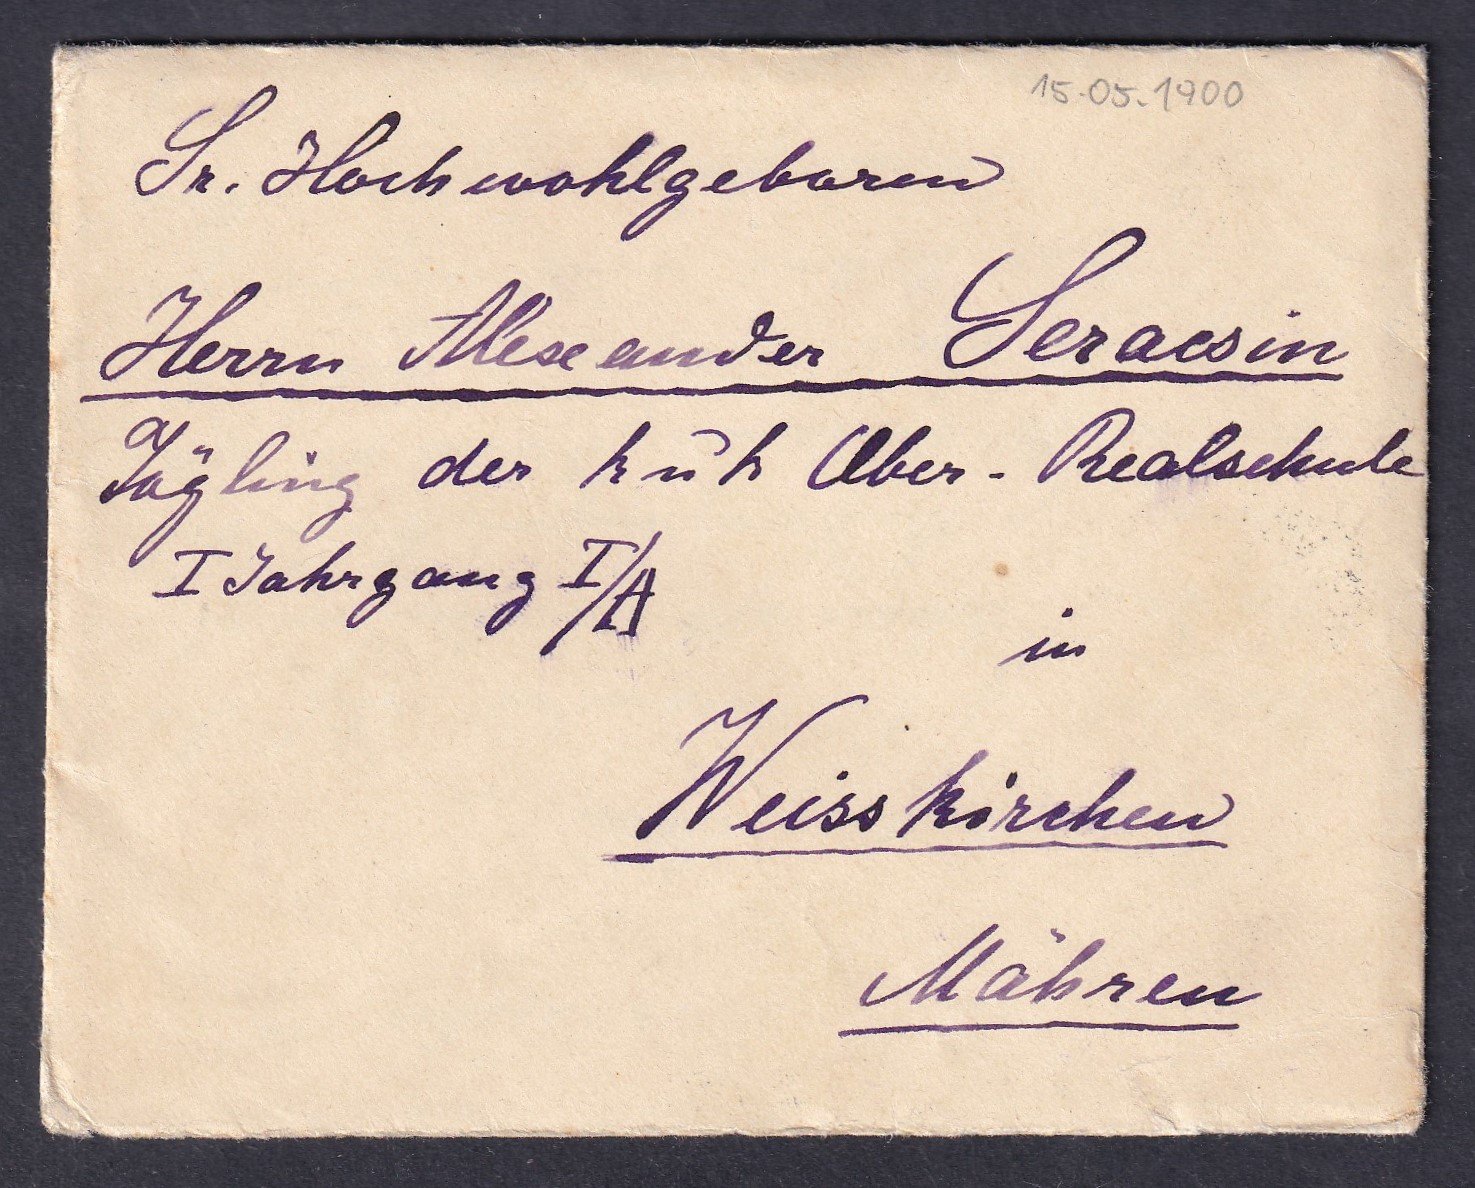 15.05.1900
Sr. Hochwohlgeboren
Herrn Alexander Seracsin
Zögling der k u k Ober-Realschule
I Jahrgang I/A
in
Weisskirchen
Mähren